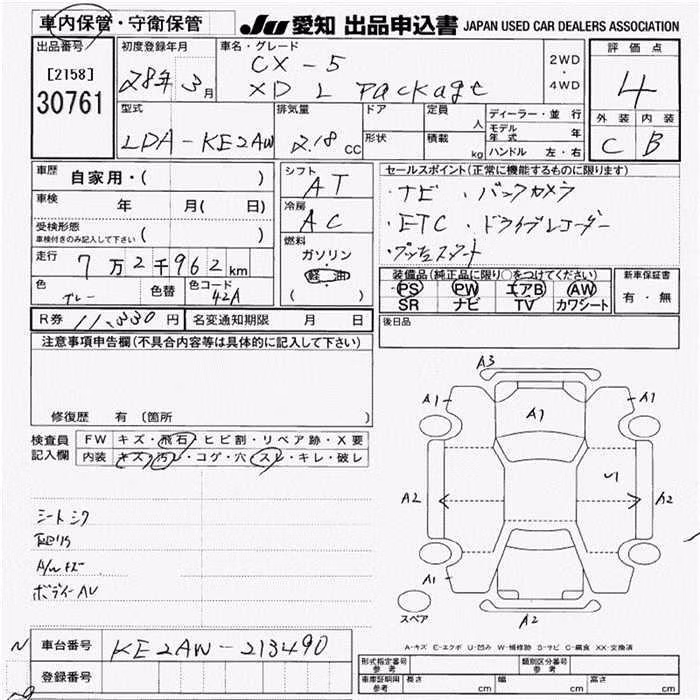 車内保管・守衛保管
JU 愛知 出品申込書 JAPAN USED CAR DEALERS ASSOCIATION
出品番号 [2158] 30761
初度登録年月 28年 3月
車名・グレード CX-5
XD L Package
2WD・4WD
評価点 4
外装 C 内装 B
型式 LDA-KE2AW
排気量 2.18 CC
ドア 形状
定員 人
積載 kg
ディーラー・並行
モデル年式 年
ハンドル 左・右
車歴 自家用・( )
シフト AT
セールスポイント(正常に機能するものに限ります)
・ナビ ・バックカメラ
・ETC ・ドライブレコーダー
・プッシュスタート
車検 年 月( 日)
冷房 AC
受検形態 ( )
車検付きのみ記入して下さい
燃料 ガソリン
軽油
( )
走行 7万2千962km
色 グレー 色替 色コード 42A
装備品(純正品に限り○をつけてください)
PS PW エアB AW
SR ナビ TV カワシート
新車保証書
有・無
R券 11,330円 名変通知期限 月 日
後日品
注意事項申告欄(不具合内容等は具体的に記入して下さい)
修復歴 有 〔箇所 〕
検査員記入欄
FW キズ・飛石・ヒビ割・リペア跡・X要
内装 キズ・汚レ・コゲ・穴・スレ・キレ・破レ
シートシワ
A/Wキズ
ボディーAU
A3
A1 A1 A1
A2 U1 A2
A1
スペア A2
A-キズ E-エクボ U-凹み W-補修跡 S-サビ C-腐食 XX-交換済
車台番号 KE2AW-213490
登録番号
形式指定番号 参考 類別区分番号 参考
車庫証明用 参考 長さ cm 幅 cm 高さ cm